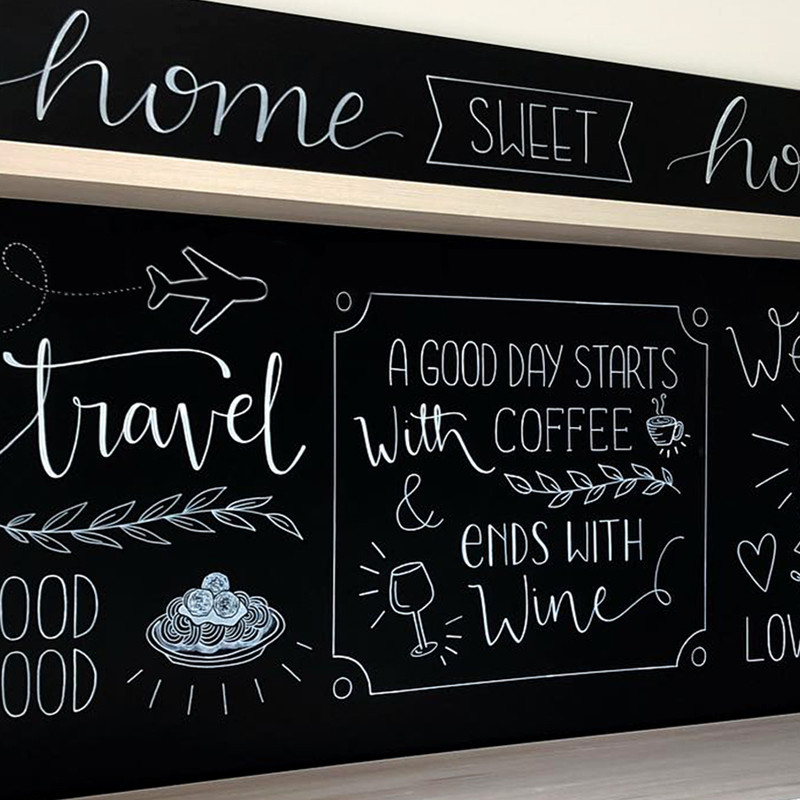 home SWEET ho
travel
OOD
OOD
A GOOD DAY STARTS
with COFFEE
&
ENDS WITH
Wine
We
LOV